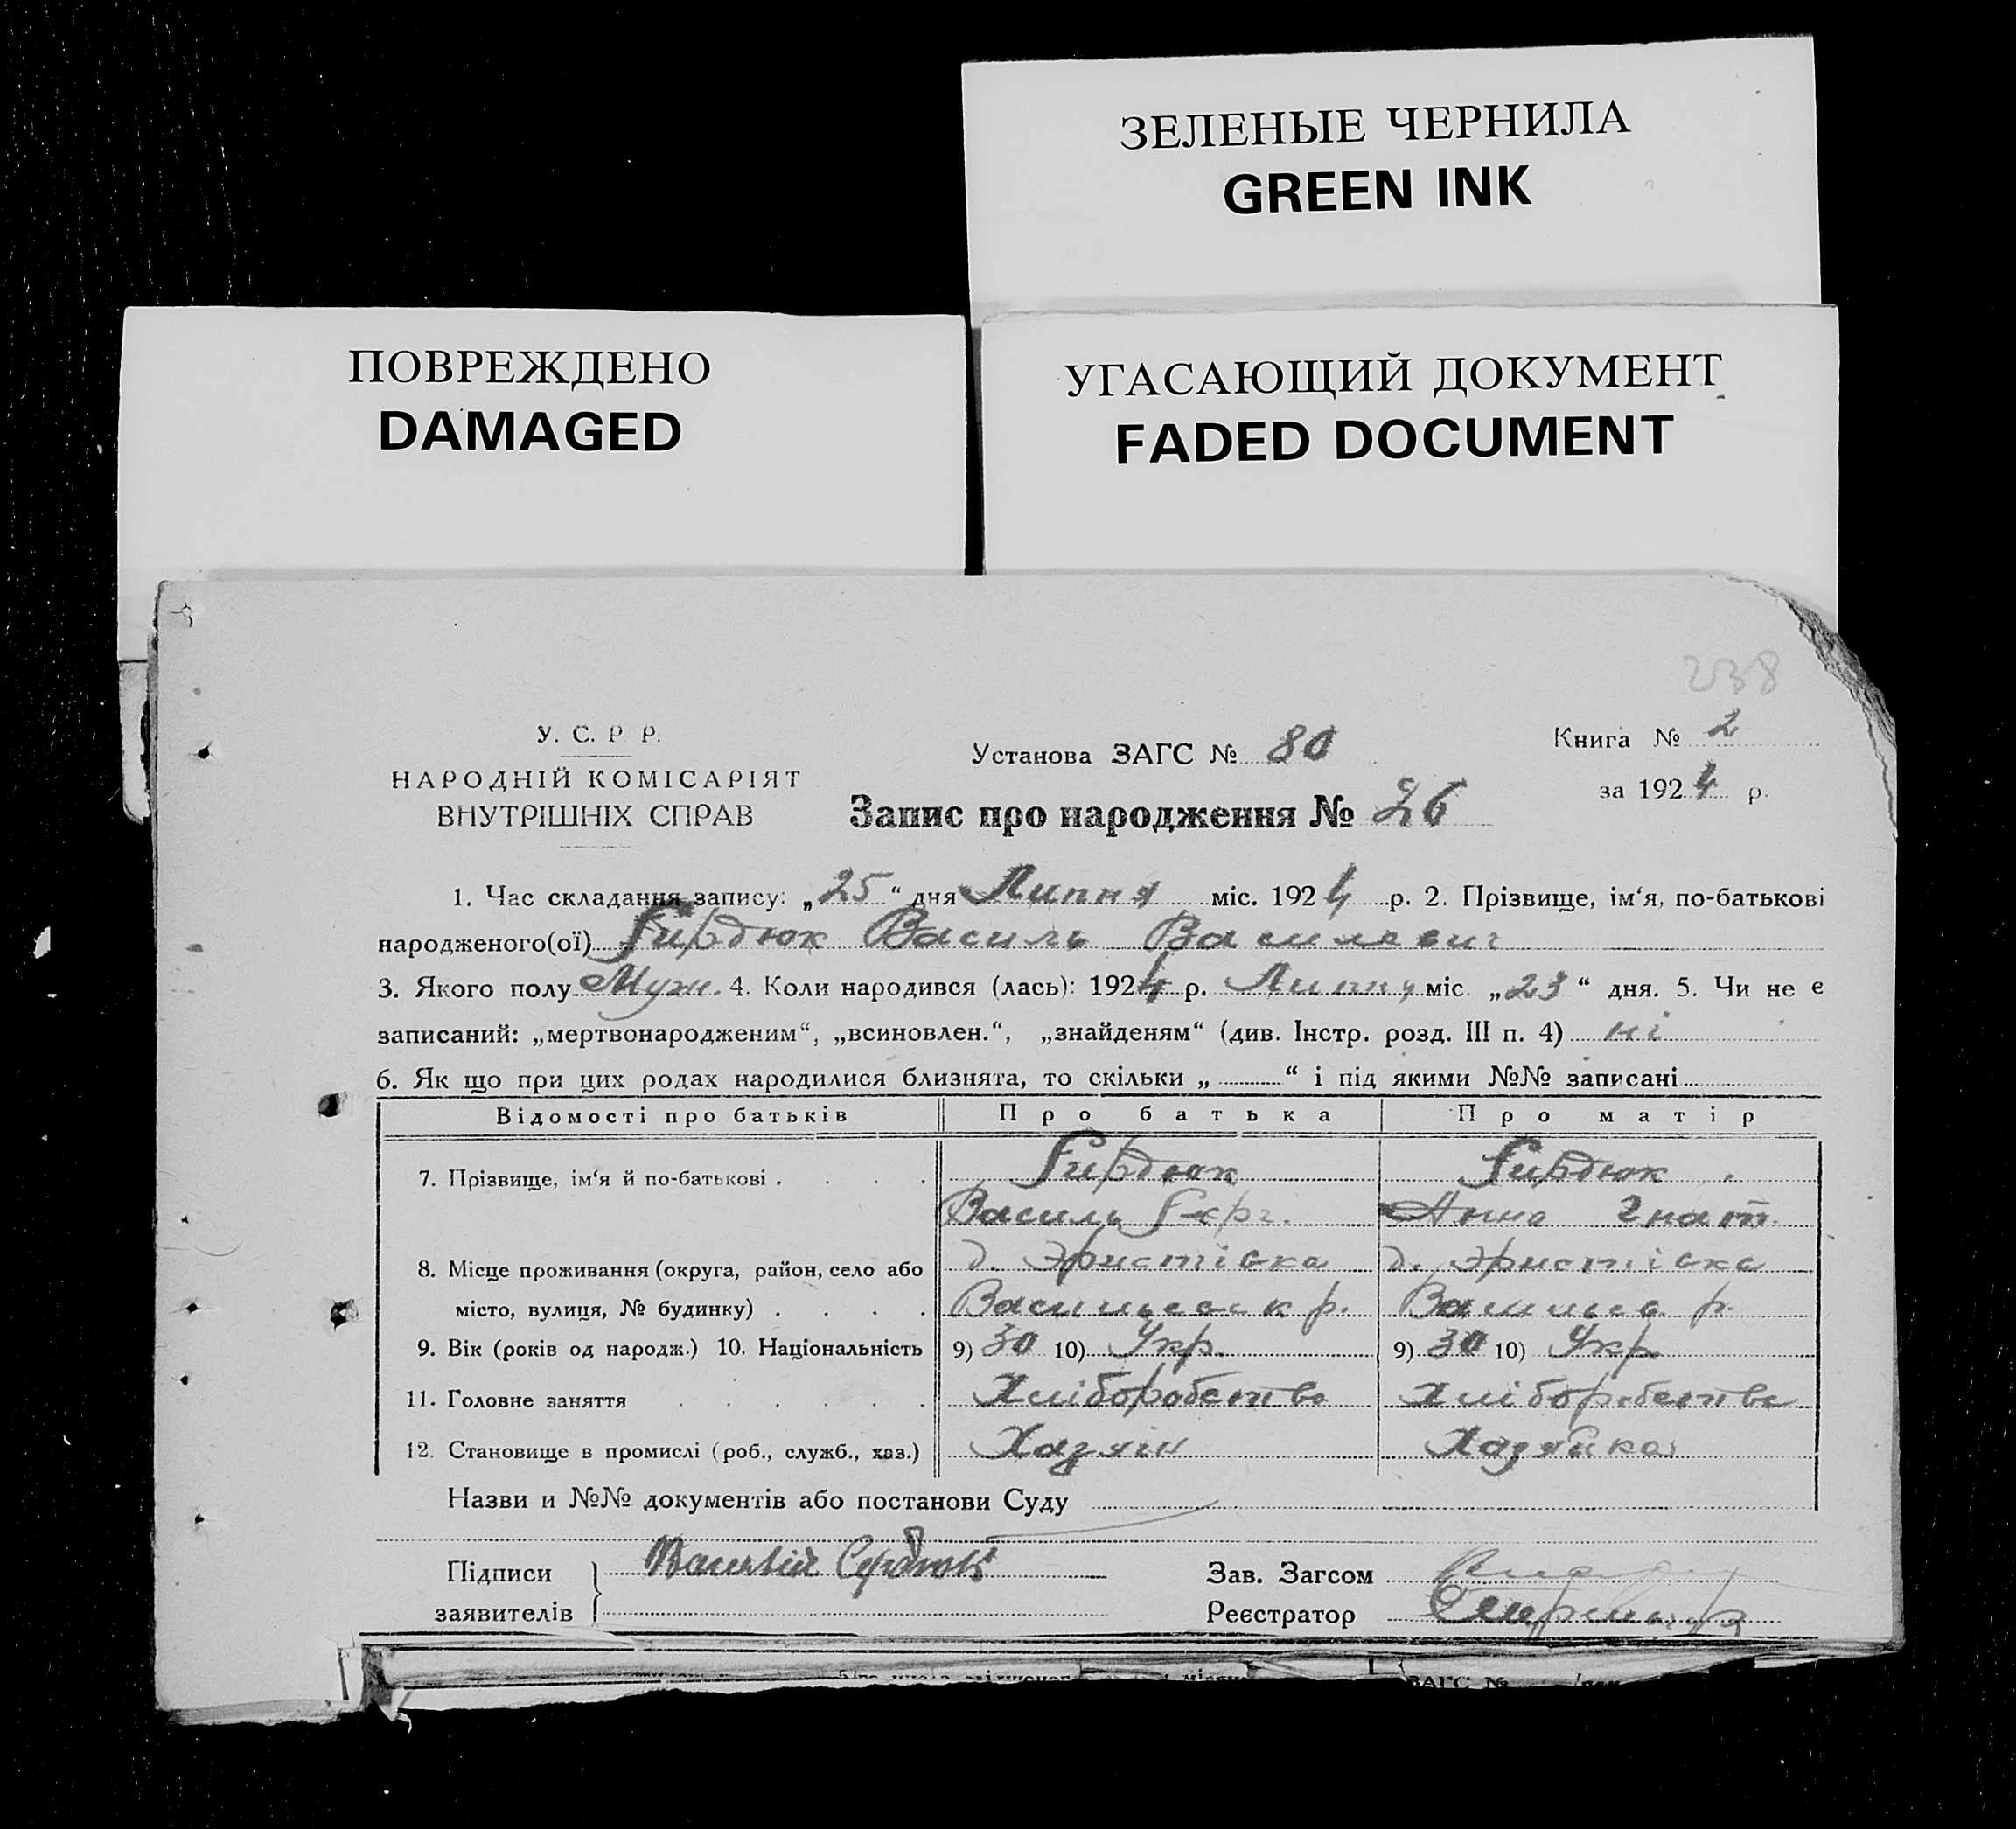 ЗЕЛЕНЫЕ ЧЕРНИЛА
GREEN INK
ПОВРЕЖДЕНО
DAMAGED
УГАСАЮЩИЙ ДОКУМЕНТ
FADED DOCUMENT
238
У. С. Р Р.
НАРОДНІЙ КОМІСАРІЯТ
ВНУТРІШНІХ СПРАВ
Установа ЗАГС № 80
Книга № 2
за 1924 р.
Запис про народження № 26
1. Час складання запису: „25“ дня Липня міс. 1924 р. 2. Прізвище, ім‘я, по-батькові
народженого(ої) Гирдюк Василь Василевич
3. Якого полу Муж. 4. Коли народився (лась): 1924 р. Липня міс. „23“ дня. 5. Чи не є
записаний: „мертвонародженим“, „всиновлен.“, „знайденям“ (див. Інстр. розд. III п. 4) ні
6. Як що при цих родах народилися близнята, то скільки „ “ і під якими №№ записані
Відомості про батьків Про батька Про матір
7. Прізвище, ім‘я й по-батькові . Гирдюк Гирдюк
Василь Анна Гнат.
8. Місце проживання (округа, район, село або д. Эристівка д. Эристівка
місто, вулиця, № будинку) р. р.
9. Вік (років од народж.) 10. Національність 9) 30 10) Укр. 9) 30 10) Укр
11. Головне заняття Хліборобство Хліборобство
12. Становище в промислі (роб., служб., хаз.) Хазяін Хазяйка
Назви и №№ документів або постанови Суду
Підписи
заявителів
Зав. Загсом
Реєстратор
ЗАГС №